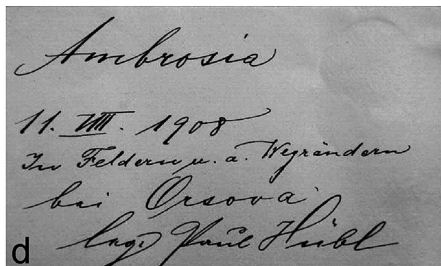 Ambrosia
11. VIII. 1908
In Feldern u. a. Wegrändern
bei Orsova
leg. Paul Hübl
d